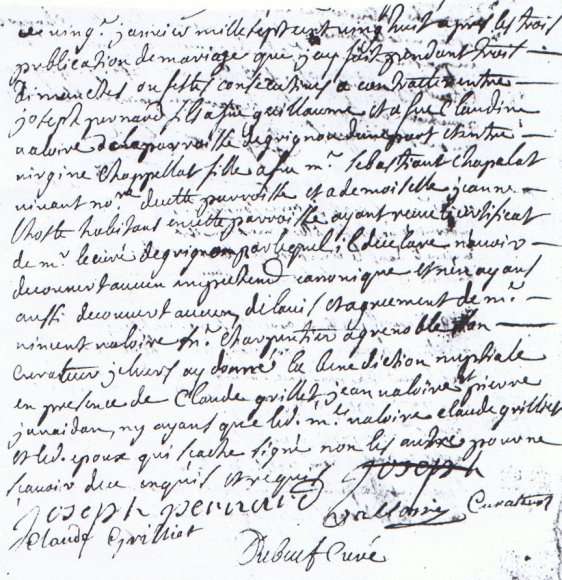 ce vingt janvier mille sept cent vingt huit apres les trois
publication de mariage que jay fait pendant trois
dimanches ou festes consecutives a contracter entre
joseph pernard fils a feu guillaume et a feue Claudine
valoire de la parroisse de grignon dune part et entre
virgine Chappellat fille a feu mr. sebastiant Chapelat
vivant nore. de cette parroisse et a demoiselle jeanne
lhoste habitans en cette parroisse ayant receu le certificat
de mr. le curé de grignon par lequel il declare navoir
decouvert aucun empechemt canonique et nen ayans
aussi decouvert aucun de lavis et agreement de mr.
vincent valoire mr. Charpentier a grenoble son
curateur je leurs ay donné la benediction nuptiale
en presence de Claude grillet jean valoire et pierre
janaidan, ny ayans que led. mr. valoire claude grilliet
et led. epoux qui scache signé non les autre pour ne
scavoir de ce enquis et requis
joseph
joseph pernard
valloire Curateur
Claude Grilliet
Dubœuf Curé